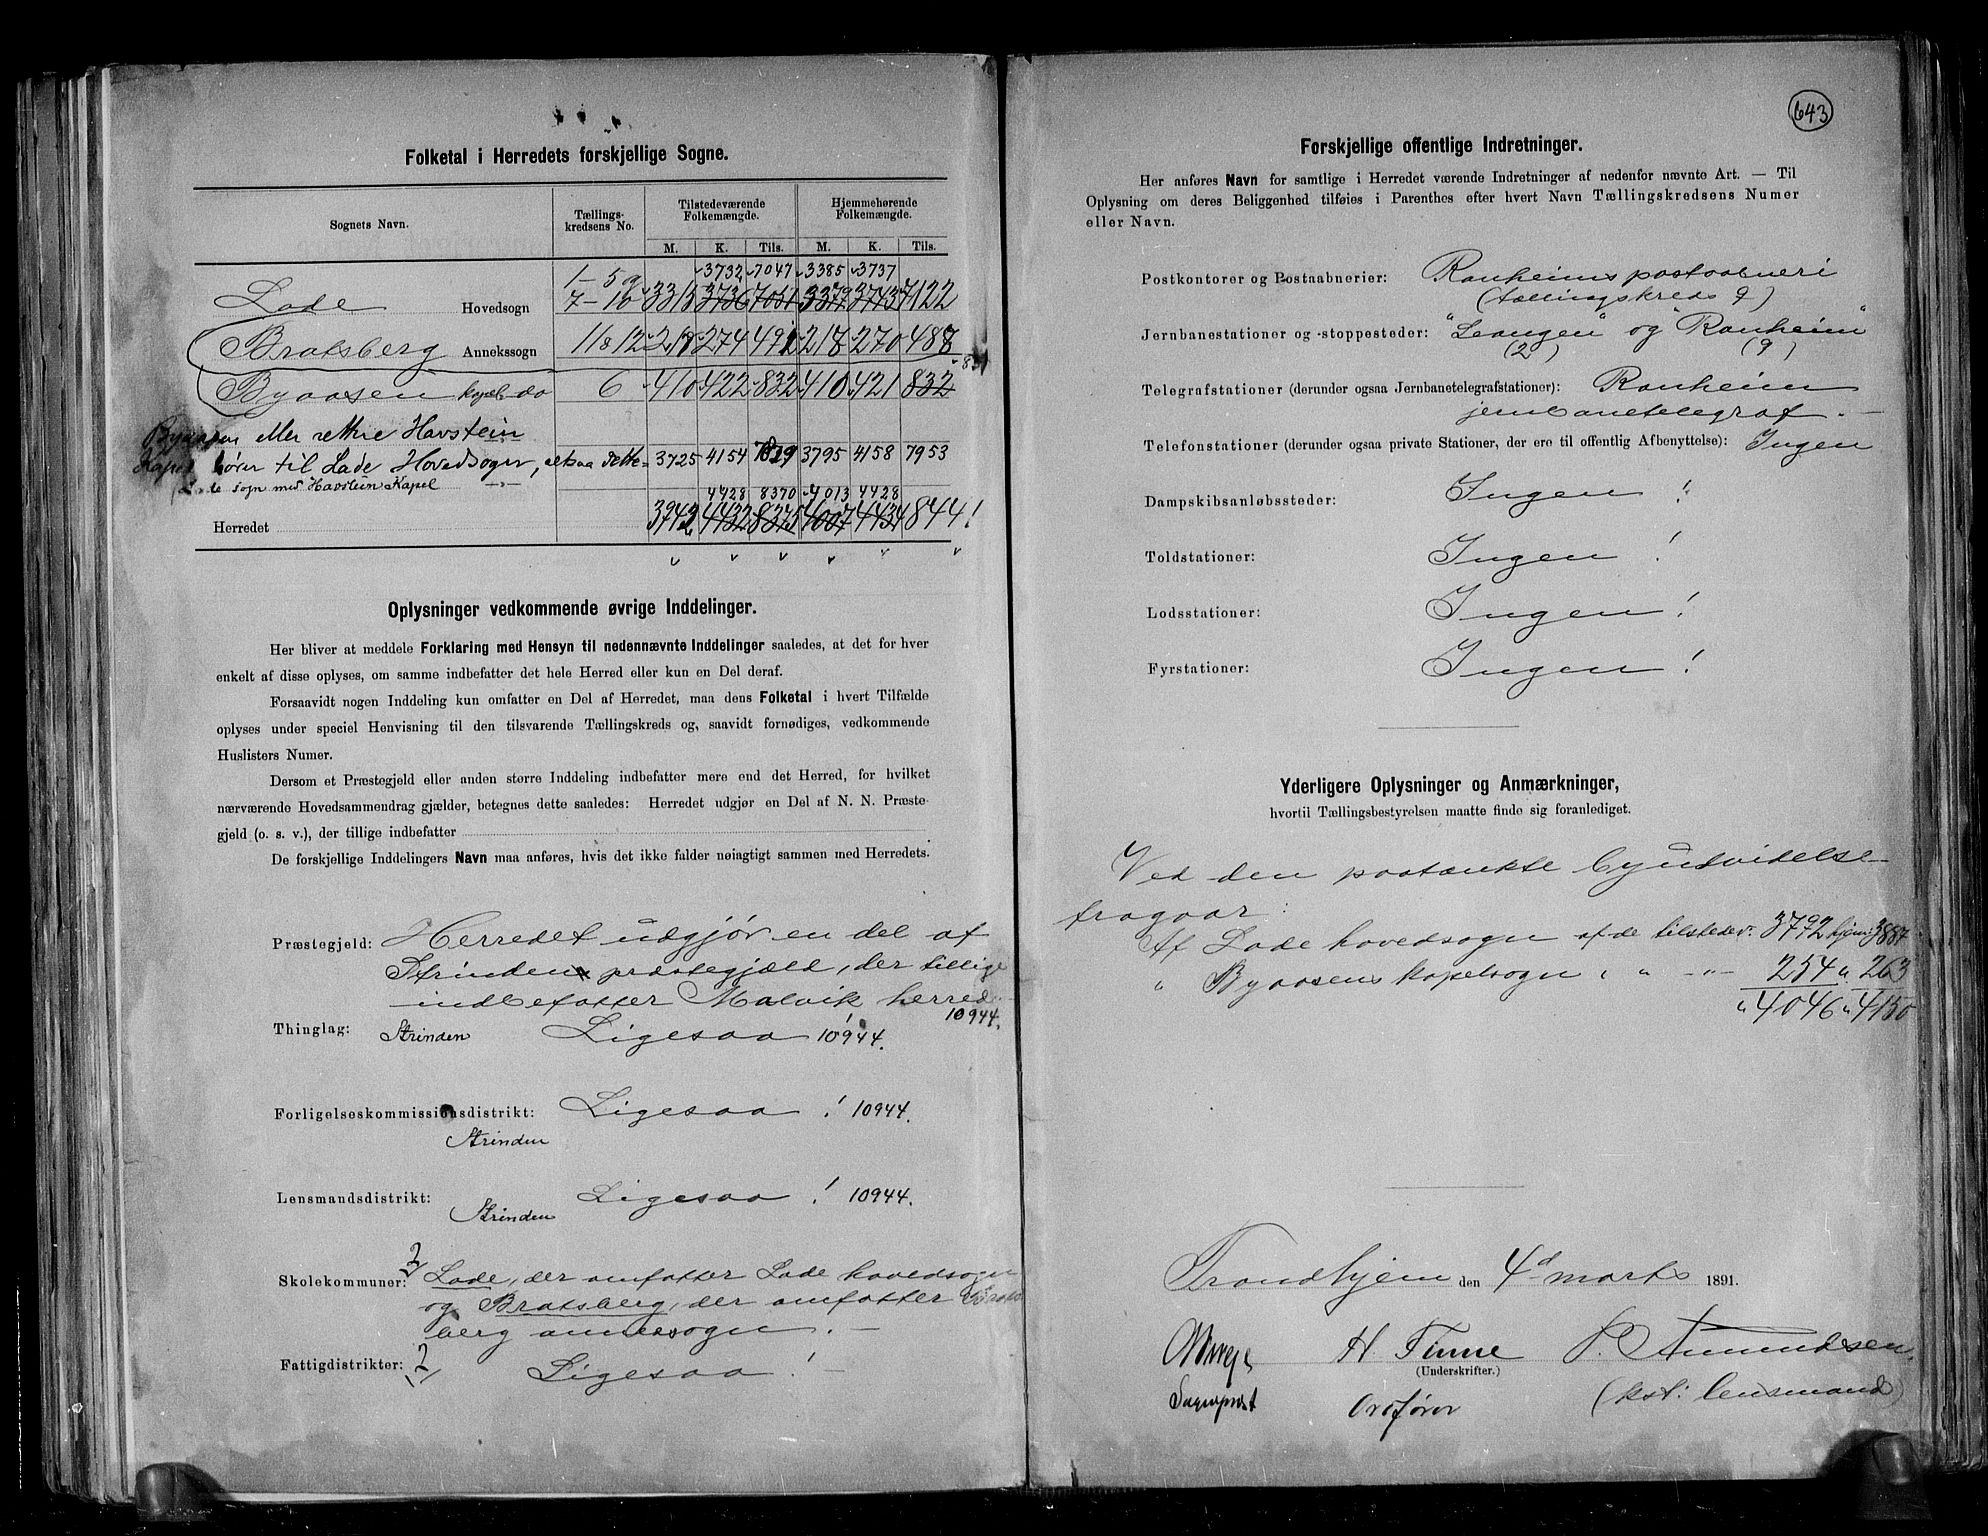 Folketal i Herredets forskjellige Sogne.
Sognets Navn. Tællings- Tilstedeværende Hjemmehørende
kredsens No. Folkemængde. Folkemængde.
M. K. Tils. M. K. Tils.
3732 7047 3385 3737
1-5 og
Lade Hovedsogn 7-10 3315 3736 7051 3379 3743 7122
Bratsberg Annekssogn 11 & 12 218 274 492 218 270 488
831
Byaasen kapel do 6 410 422 832 410 421 832
Byaasen eller rettere Havstein
Kapel hører til Lade Hovedsogn, altsaa dette 3725 4154 7879 3795 4158 7953
Lade sogn med Havstein Kapel
4428 8370 4013 4428
Herredet 3942 4432 8375 4007 4434 8441
Oplysninger vedkommende øvrige Inddelinger.
Her bliver at meddele Forklaring med Hensyn til nedennævnte Inddelinger saaledes, at det for hver
enkelt af disse oplyses, om samme indbefatter det hele Herred eller kun en Del deraf.
Forsaavidt nogen Inddeling kun omfatter en Del af Herredet, maa dens Folketal i hvert Tilfælde
oplyses under speciel Henvisning til den tilsvarende Tællingskreds og, saavidt fornødiges, vedkommende
Huslisters Numer.
Dersom et Præstegjeld eller anden større Inddeling indbefatter mere end det Herred, for hvilket
nærværende Hovedsammendrag gjælder, betegnes dette saaledes: Herredet udgjør en Del af N. N. Præste-
gjeld (o. s. v.), der tillige indbefatter
De forskjellige Inddelingers Navn maa anføres, hvis det ikke falder nøiagtigt sammen med Herredets.
Præstegjeld: Herredet udgjør en del af
Strinden præstegjæld, der tillige
indbefatter Malvik herred.
10944.
Thinglag: Strinden Ligesaa! 10944.
Forligelseskommissionsdistrikt: Ligesaa! 10944.
Strinden
Lensmandsdistrikt: Ligesaa! 10944.
Strinden
Skolekommuner: 2/ Lade, der omfatter Lade hovedsogn
og Bratsberg, der omfatter Brats-
berg annexsogn. —
Fattigdistrikter: 2/ Ligesaa! —
643
Forskjellige offentlige Indretninger.
Her anføres Navn for samtlige i Herredet værende Indretninger af nedenfor nævnte Art. — Til
Oplysning om deres Beliggenhed tilføies i Parenthes efter hvert Navn Tællingskredsens Numer
eller Navn.
Postkontorer og Postaabnerier: Ranheims postaabneri
(tællingskreds 9)
Jernbanestationer og -stoppesteder: "Leangen" og "Ranheim"
(2) (9)
Telegrafstationer (derunder ogsaa Jernbanetelegrafstationer): Ranheim
jernbanetelegraf. —
Telefonstationer (derunder ogsaa private Stationer, der ere til offentlig Afbenyttelse): Ingen
Dampskibsanløbssteder: Ingen!
Toldstationer: Ingen!
Lodsstationer: Ingen!
Fyrstationer: Ingen!
Yderligere Oplysninger og Anmærkninger,
hvortil Tællingsbestyrelsen maatte finde sig foranlediget.
Ved den paatænkte byudvidelse
fragaar:
Af Lade hovedsogn af de tilstedev. 3792 hjem: 3887
" Byaasens kapelsogn " " -"- 254 " 263
" 4046 " 4150
Trondhjem den 4d marts 1891.
H. Finne P. Amundsen
(Underskrifter.)
Sogneprest Ordfører (kst: lensmand)